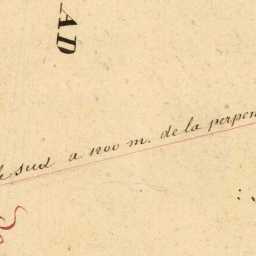 AD
sud a 1200 m. de la perpen